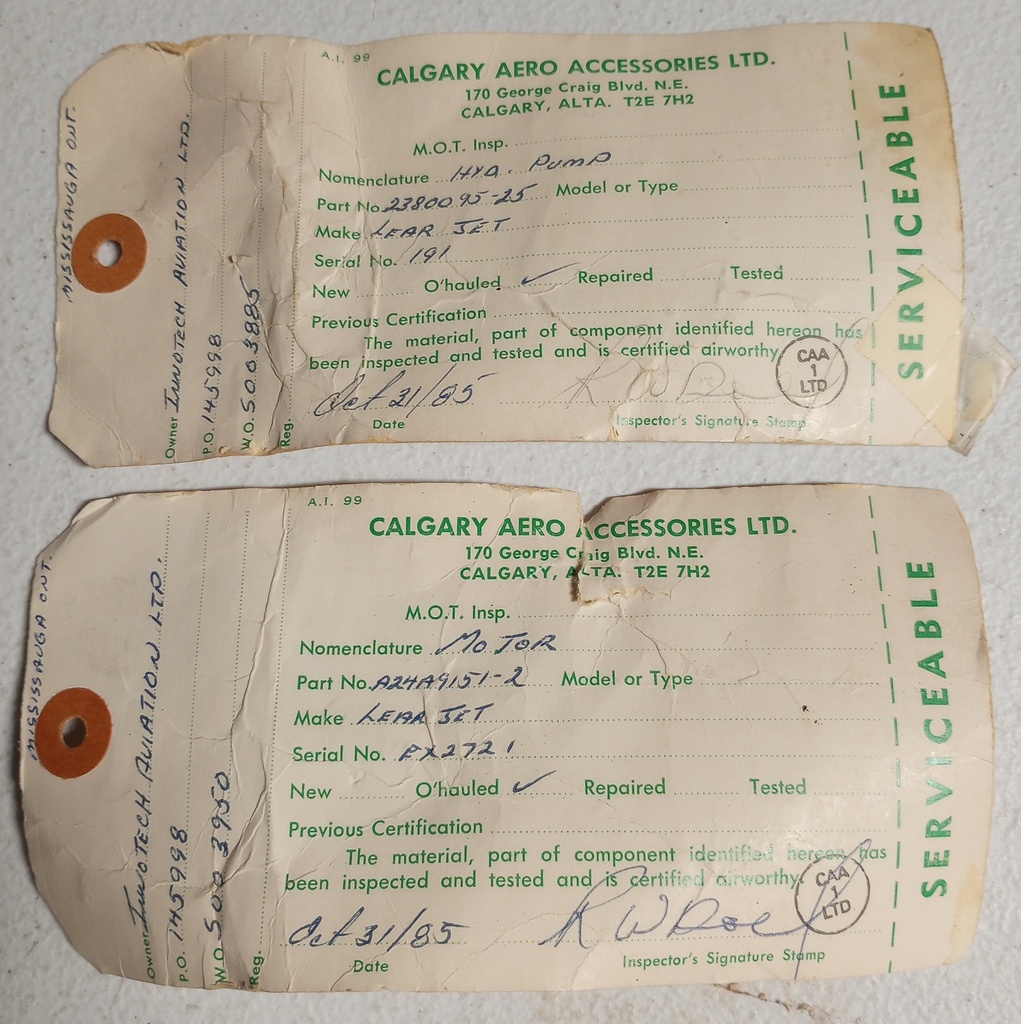 A.I. 99
CALGARY AERO ACCESSORIES LTD.
170 George Craig Blvd. N.E.
CALGARY, ALTA. T2E 7H2
M.O.T. Insp.
Nomenclature HYD. PUMP
Part No. 2380095-25 Model or Type
Make LEAR JET
Serial No. 191
New O'hauled ✓ Repaired Tested
Previous Certification
The material, part of component identified hereon has
been inspected and tested and is certified airworthy.
Oct 31/85
Date Inspector's Signature Stamp
CAA
1
LTD
SERVICEABLE
MISSISSAUGA ONT.
Owner INNOTECH AVIATION LTD.
P.O. 145998
W.O. 5003885
Reg.
A.I. 99
CALGARY AERO ACCESSORIES LTD.
170 George Craig Blvd. N.E.
CALGARY, ALTA. T2E 7H2
M.O.T. Insp.
Nomenclature MOTOR
Part No. A24A9151-2 Model or Type
Make LEAR JET
Serial No. EX2721
New O'hauled ✓ Repaired Tested
Previous Certification
The material, part of component identified hereon has
been inspected and tested and is certified airworthy.
Oct 31/85
Date Inspector's Signature Stamp
CAA
1
LTD
SERVICEABLE
MISSISSAUGA ONT.
Owner INNOTECH AVIATION LTD.
P.O. 145998
W.O. 5003950
Reg.